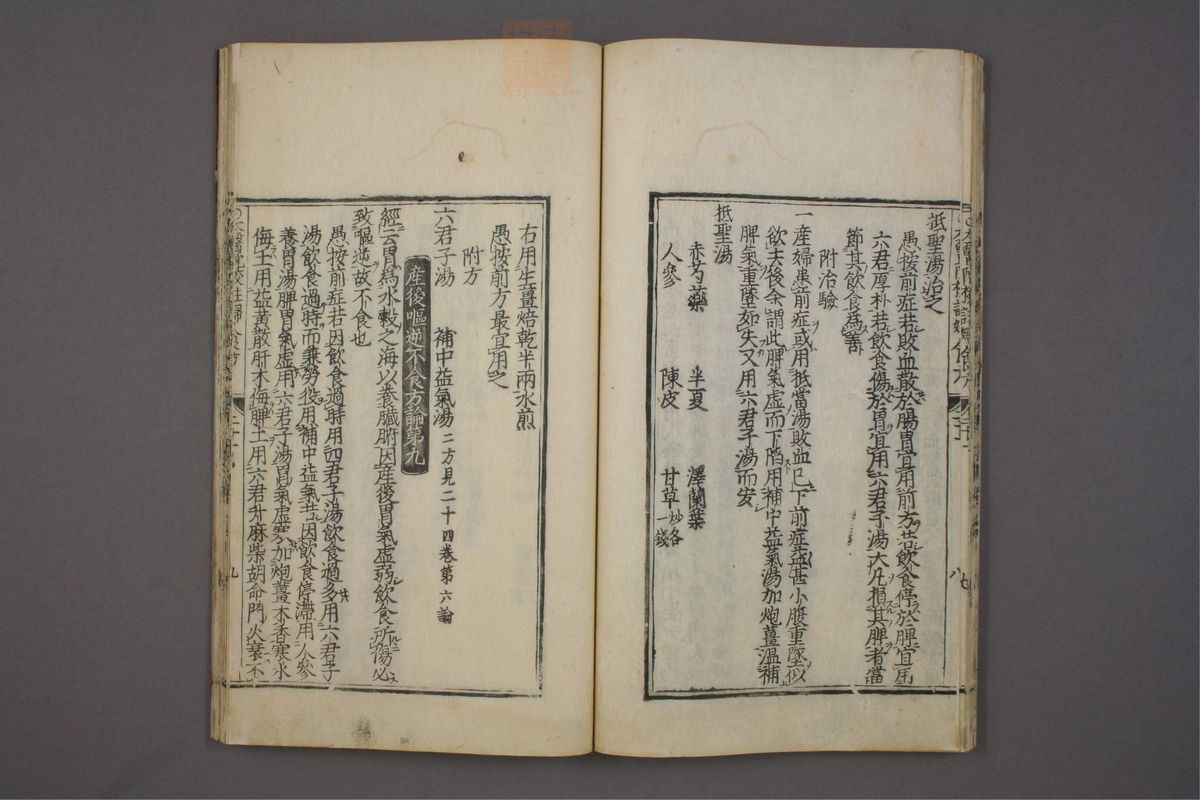 抵聖湯治之
愚按前症若敗血散於腸胃宜用前方若飲食停於脾宜用
六君厚朴若飲食傷於胃宜用六君子湯大凡損其脾者當
節其飲食為善
附治驗
一產婦患前症或用抵當湯敗血已下前症益甚小腹重墜似
欲去後余謂此脾氣虛而下陷用補中益氣湯加炮薑溫補
脾氣重墜如失又用六君子湯而安
抵聖湯
赤芍藥 半夏 澤蘭葉
人參 陳皮 甘草炒各一錢
右用生薑焙乾半兩水煎
愚按前方最宜用之
附方
六君子湯 補中益氣湯二方見二十四卷第六論
產後嘔逆不食方論第九
經云胃為水穀之海以養臟腑因產後胃氣虛弱飲食所傷必
致嘔逆故不食也
愚按前症若因飲食過時用四君子湯飲食過多用六君子
湯飲食過時而兼勞役用補中益氣若因飲食停滯用人參
養胃湯脾胃氣虛用六君子湯胃氣虛寒加炮薑木香寒水
侮土用益黃散肝木侮脾土用六君升麻柴胡命門火衰不